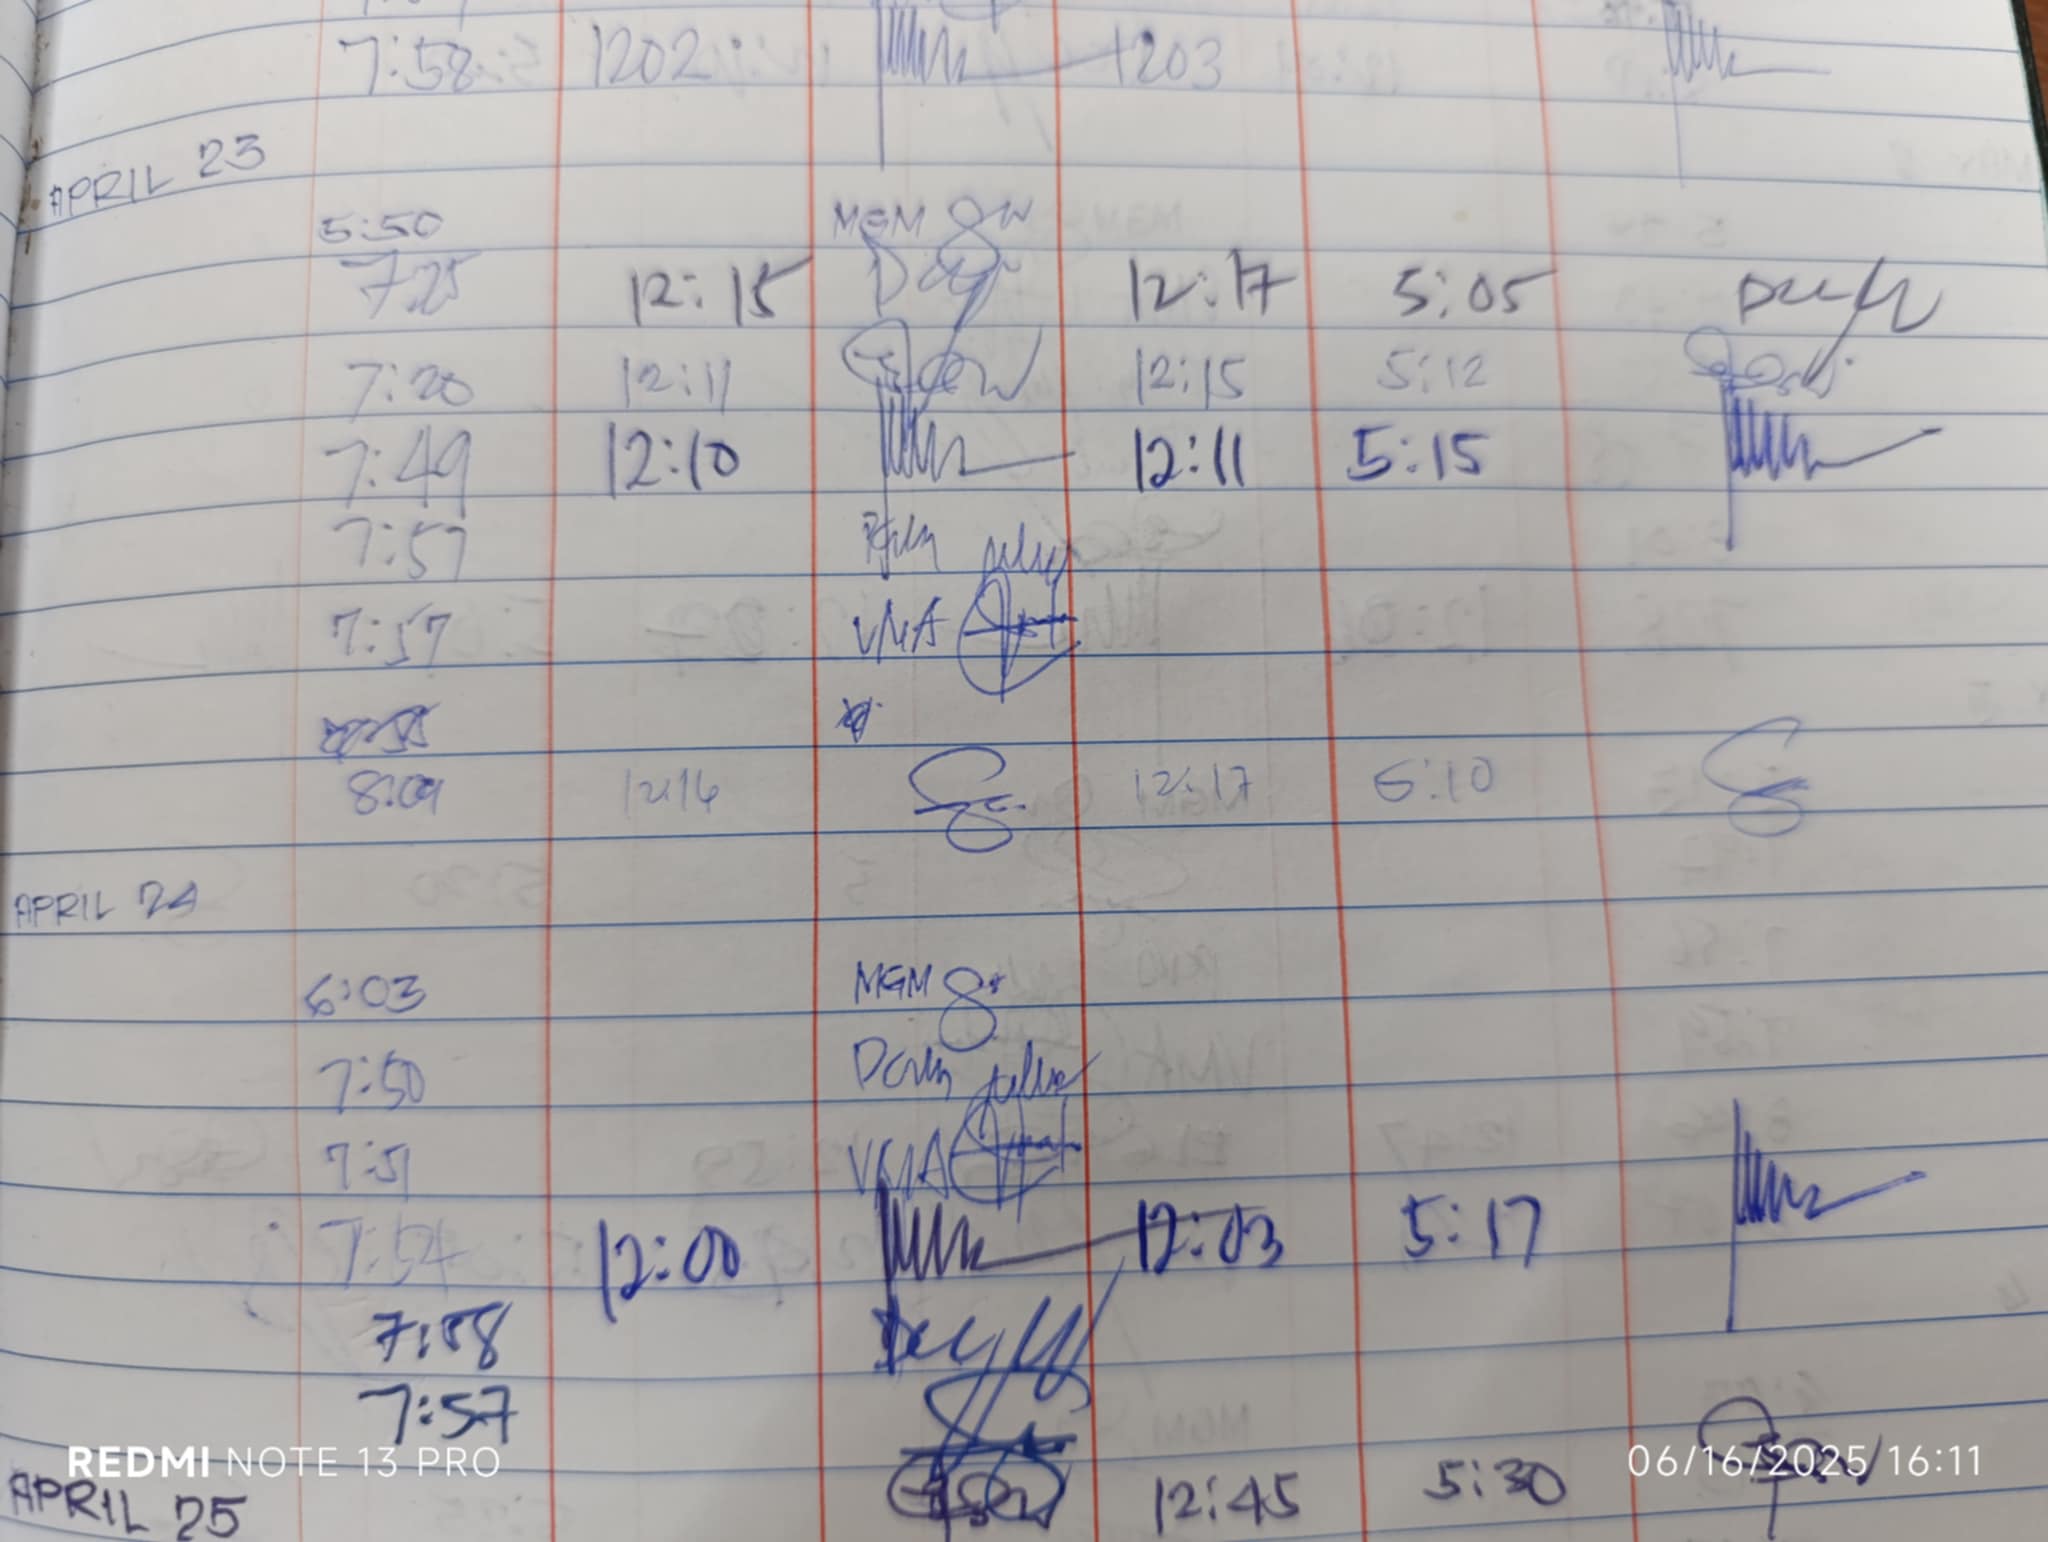 7:58 1202 1203
APRIL 23
5:50 MGM
7:25 12:15 12:17 5:05
7:20 12:11 12:15 5:12
7:49 12:10 12:11 5:15
7:57
7:57 VMA
8:09 12:16 12:17 5:10
APRIL 24
6:03 MGM
7:50
7:51 VMA
7:54 12:00 12:03 5:17
7:58
7:57
12:45 5:30
APRIL 25
REDMI NOTE 13 PRO 06/16/2025 16:11